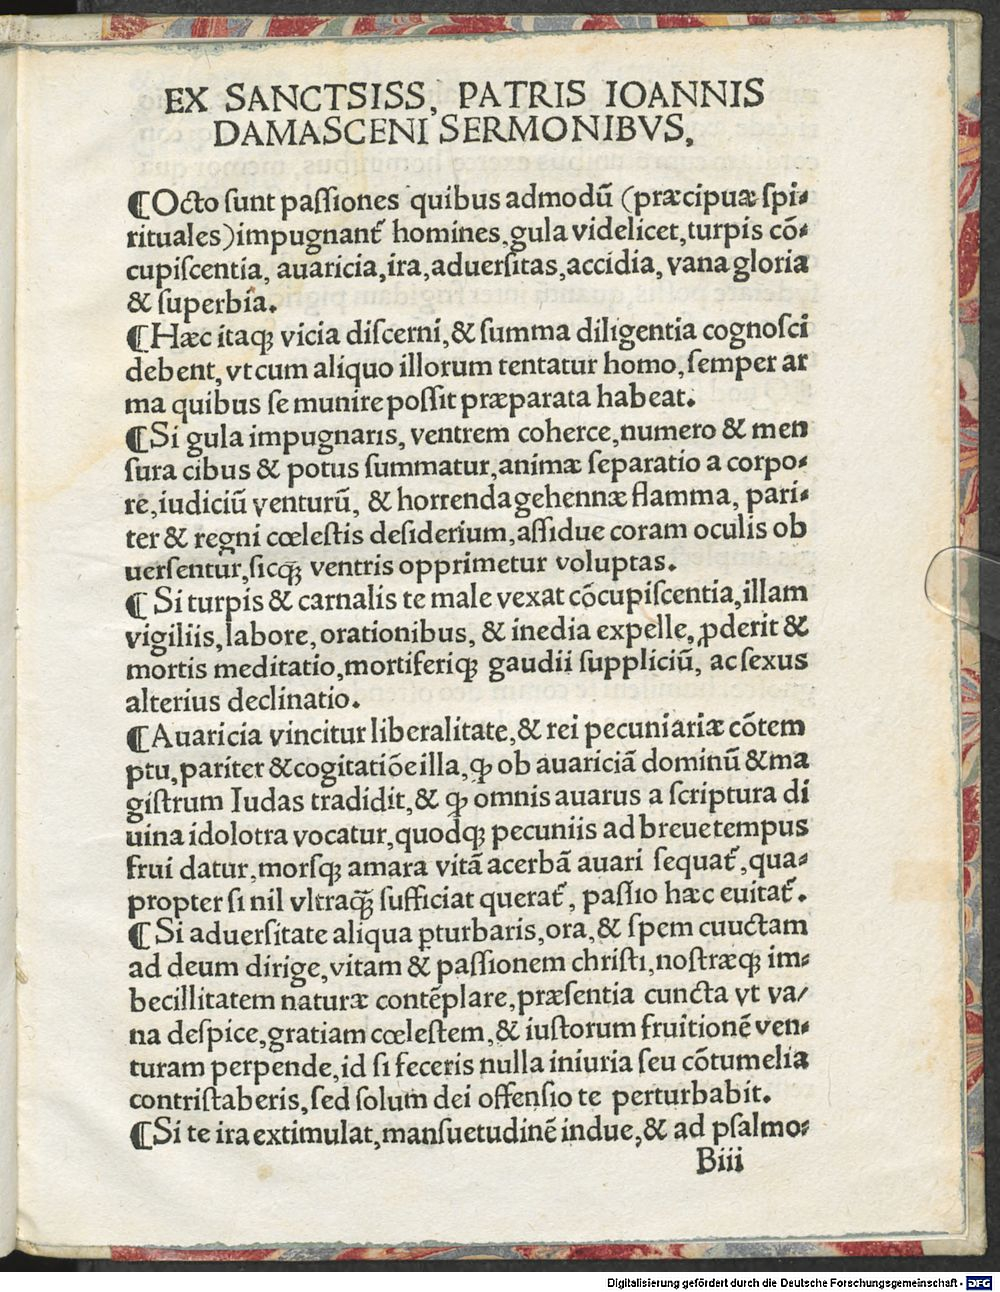 EX SANCTSISS, PATRIS IOANNIS
DAMASCENI SERMONIBVS,
¶Octo sunt passiones quibus admodū (præcipuæ spi⸗
rituales) impugnant᷑ homines, gula videlicet, turpis cō⸗
cupiscentia, auaricia, ira, aduersitas, accidia, vana gloria
& superbia.
¶Hæc itaqꝫ vicia discerni, & summa diligentia cognosci
debent, vt cum aliquo illorum tentatur homo, semper ar
ma quibus se munire possit præparata habeat.
¶Si gula impugnaris, ventrem coherce, numero & men
sura cibus & potus summatur, animæ separatio a corpo⸗
re, iudiciū venturū, & horrenda gehennæ flamma, pari⸗
ter & regni cœlestis desiderium, assidue coram oculis ob
uersentur, sicqꝫ ventris opprimetur voluptas.
¶ Si turpis & carnalis te male vexat cōcupiscentia, illam
vigiliis, labore, orationibus, & inedia expelle, ꝓderit &
mortis meditatio, mortiferiqꝫ gaudii suppliciū, ac sexus
alterius declinatio.
¶Auaricia vincitur liberalitate, & rei pecuniariæ cōtem
ptu, pariter & cogitatiōe illa, ꝙ ob auariciā dominū & ma
gistrum Iudas tradidit, & ꝙ omnis auarus a scriptura di
uina idolotra vocatur, quodqꝫ pecuniis ad breue tempus
frui datur, morsqꝫ amara vitā acerbā auari sequat᷑, qua⸗
propter si nil vltraqꝫ̃ sufficiat querat᷑, passio hæc euitat᷑.
¶Si aduersitate aliqua ꝑturbaris, ora, & spem cuuctam
ad deum dirige, vitam & passionem christi, nostræqꝫ im⸗
becillitatem naturæ contēplare, præsentia cuncta vt va/
na despice, gratiam cœlestem, & iustorum fruitionē ven⸗
turam perpende, id si feceris nulla iniuria seu cōtumelia
contristaberis, sed solum dei offensio te perturbabit.
¶Si te ira extimulat, mansuetudinē indue, & ad psalmo⸗
Biii
Digitalisierung gefördert durch die Deutsche Forschungsgemeinschaft - DFG